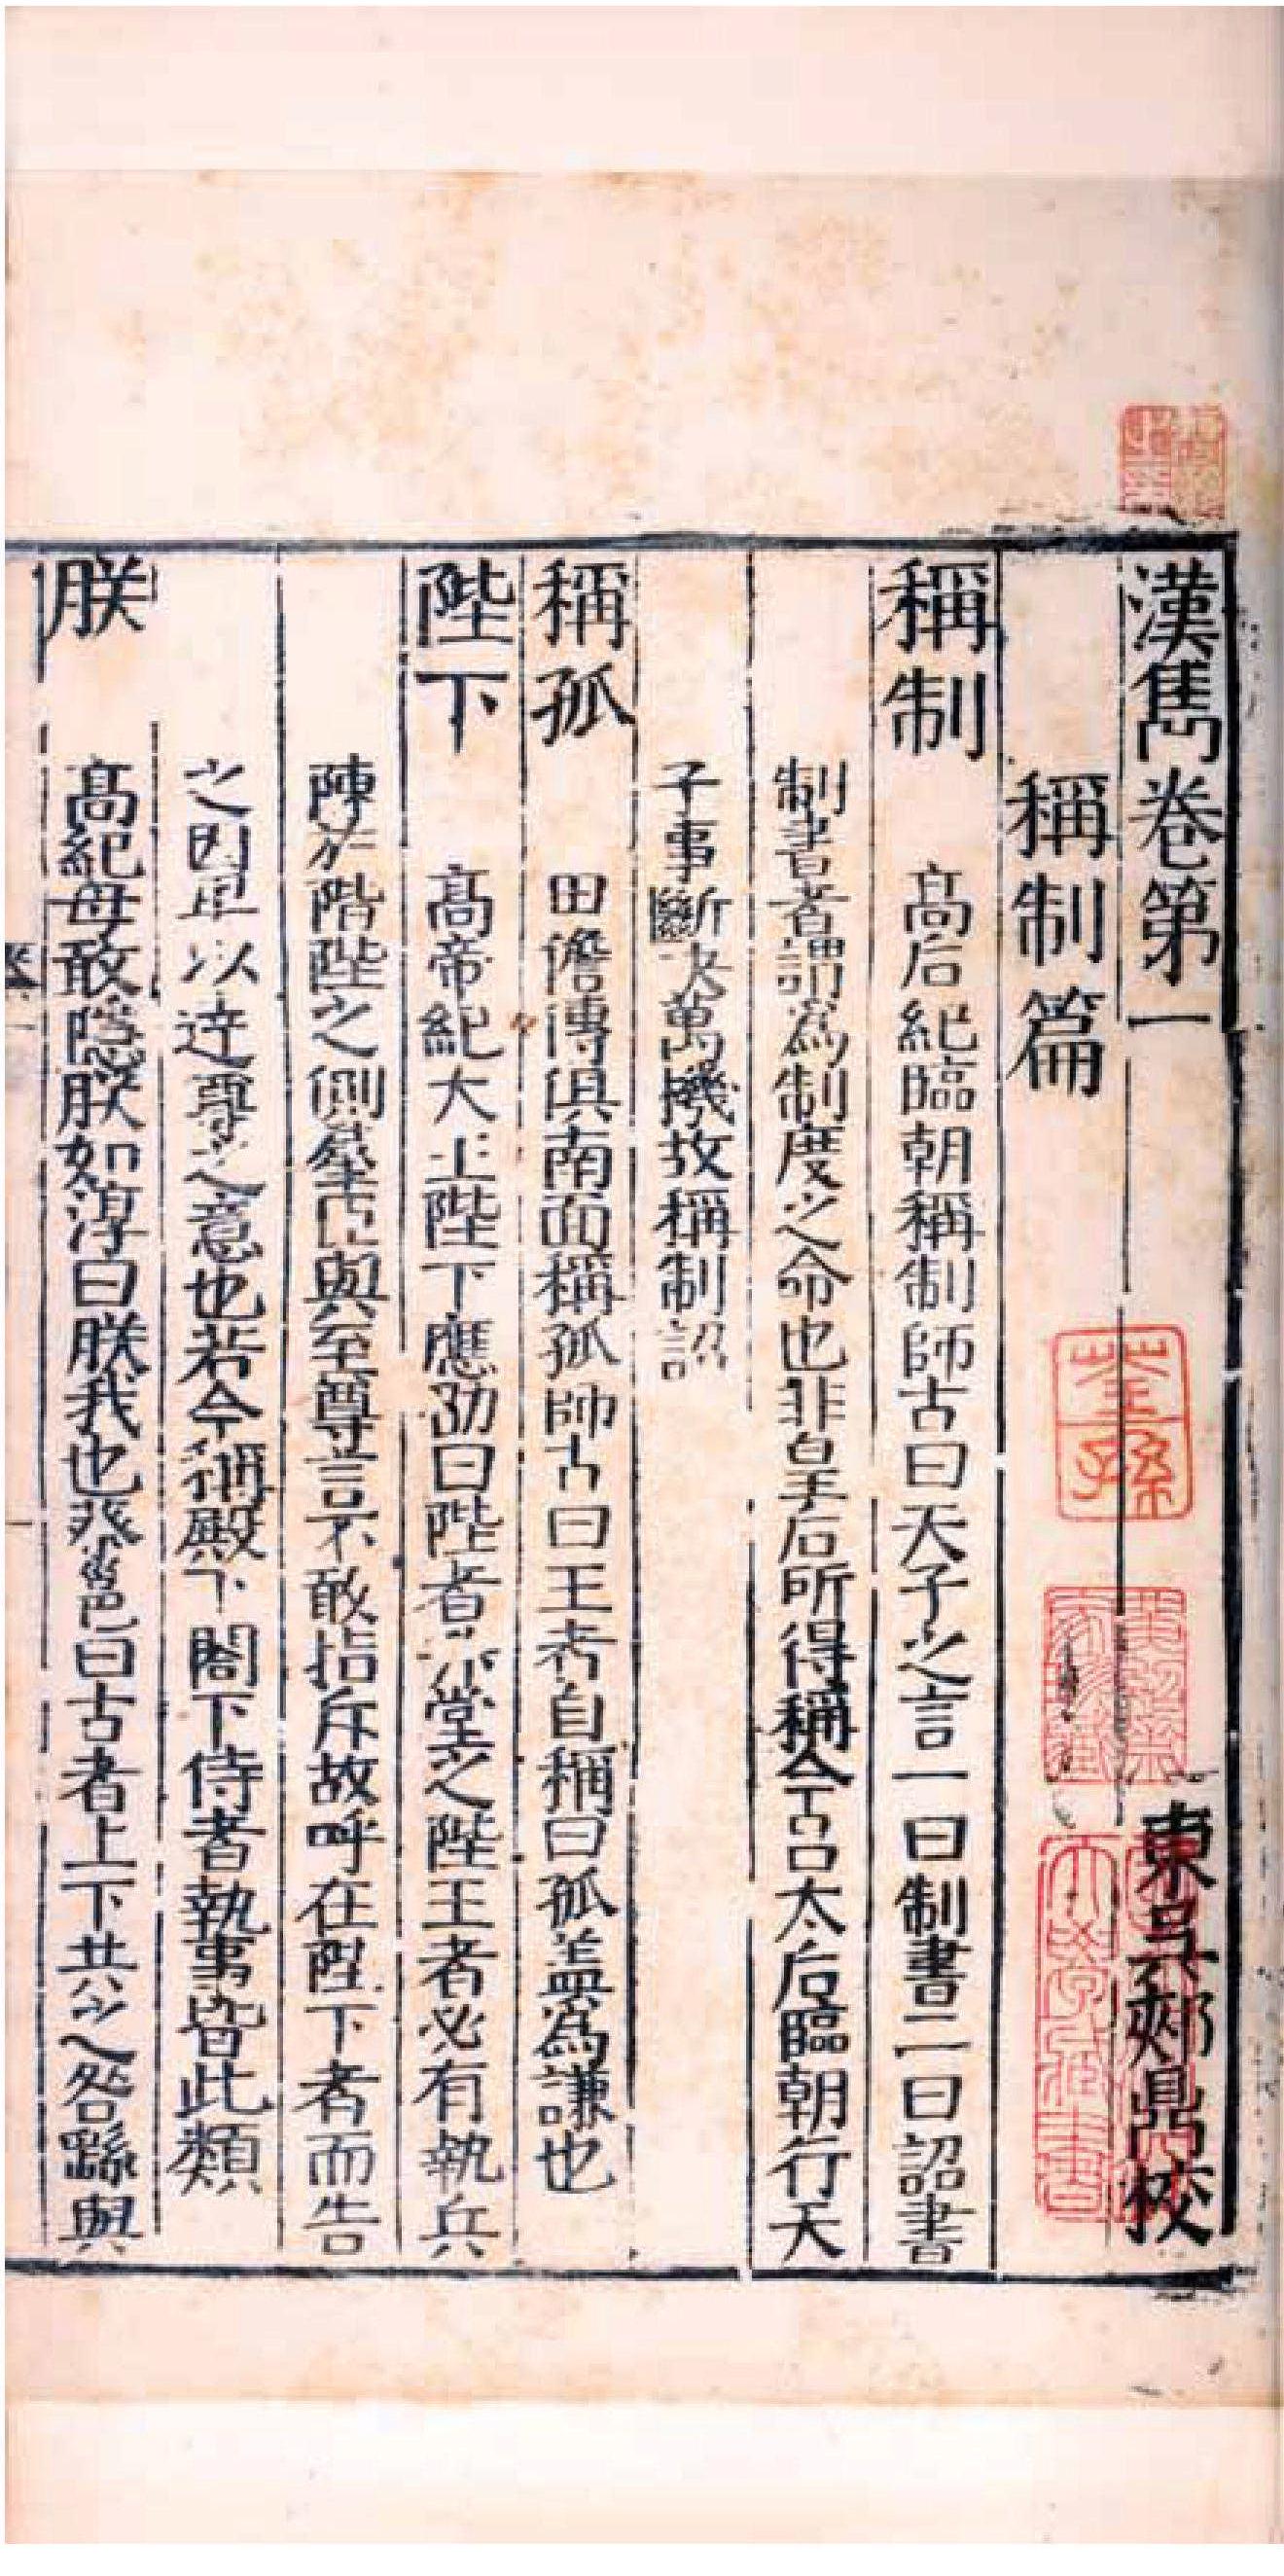 漢雋卷第一
東吳郟鼎校
稱制篇
稱制 高后紀臨朝稱制師古曰天子之言一曰制書二曰詔書
制書者謂爲制度之命也非皇后所得稱今呂太后臨朝行天
子事斷决萬機故稱制詔
稱孤 田儋傳俱南面稱孤師古曰王者自稱曰孤盖爲謙也
陛下 高帝紀大王陛下應劭曰陛者升堂之陛王者必有執兵
陳於階陛之側羣臣與至尊言不敢指斥故呼在陛下者而告
之因卑以達尊之意也若今稱殿下閣下侍者執事皆此類
朕 高紀母敢隱朕如淳曰朕我也蔡邕曰古者上下共之咎繇與
荃孫